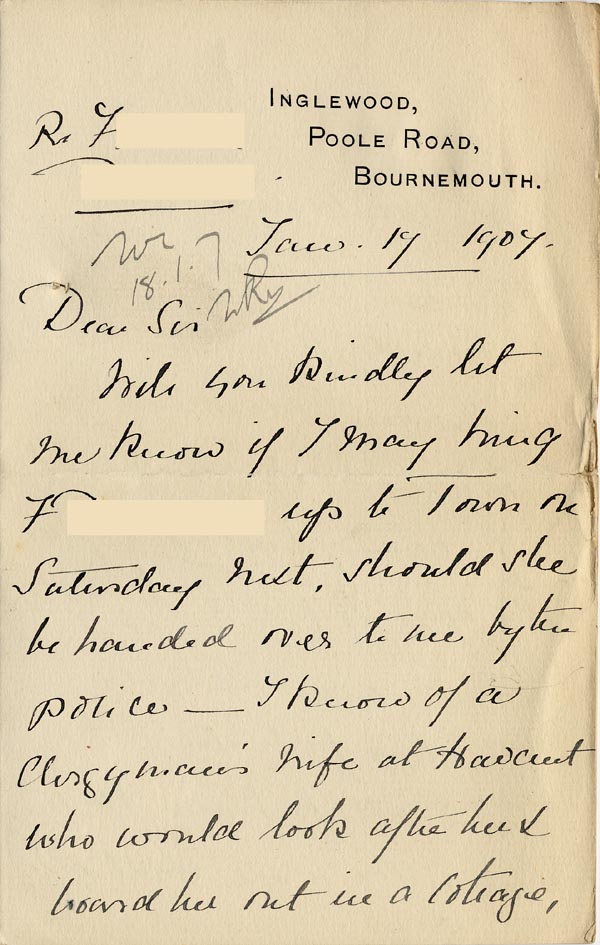 INGLEWOOD,
POOLE ROAD,
BOURNEMOUTH.
Re F
Jan. 17 1907.
18.1.7
Dear Sir
Will you kindly let
me know if I may bring
F up to Town on
Saturday next, should she
be handed over to me by the
police — I know of a
Clergyman's Wife at Havant
who would look after her &
board her out in a Cottage,